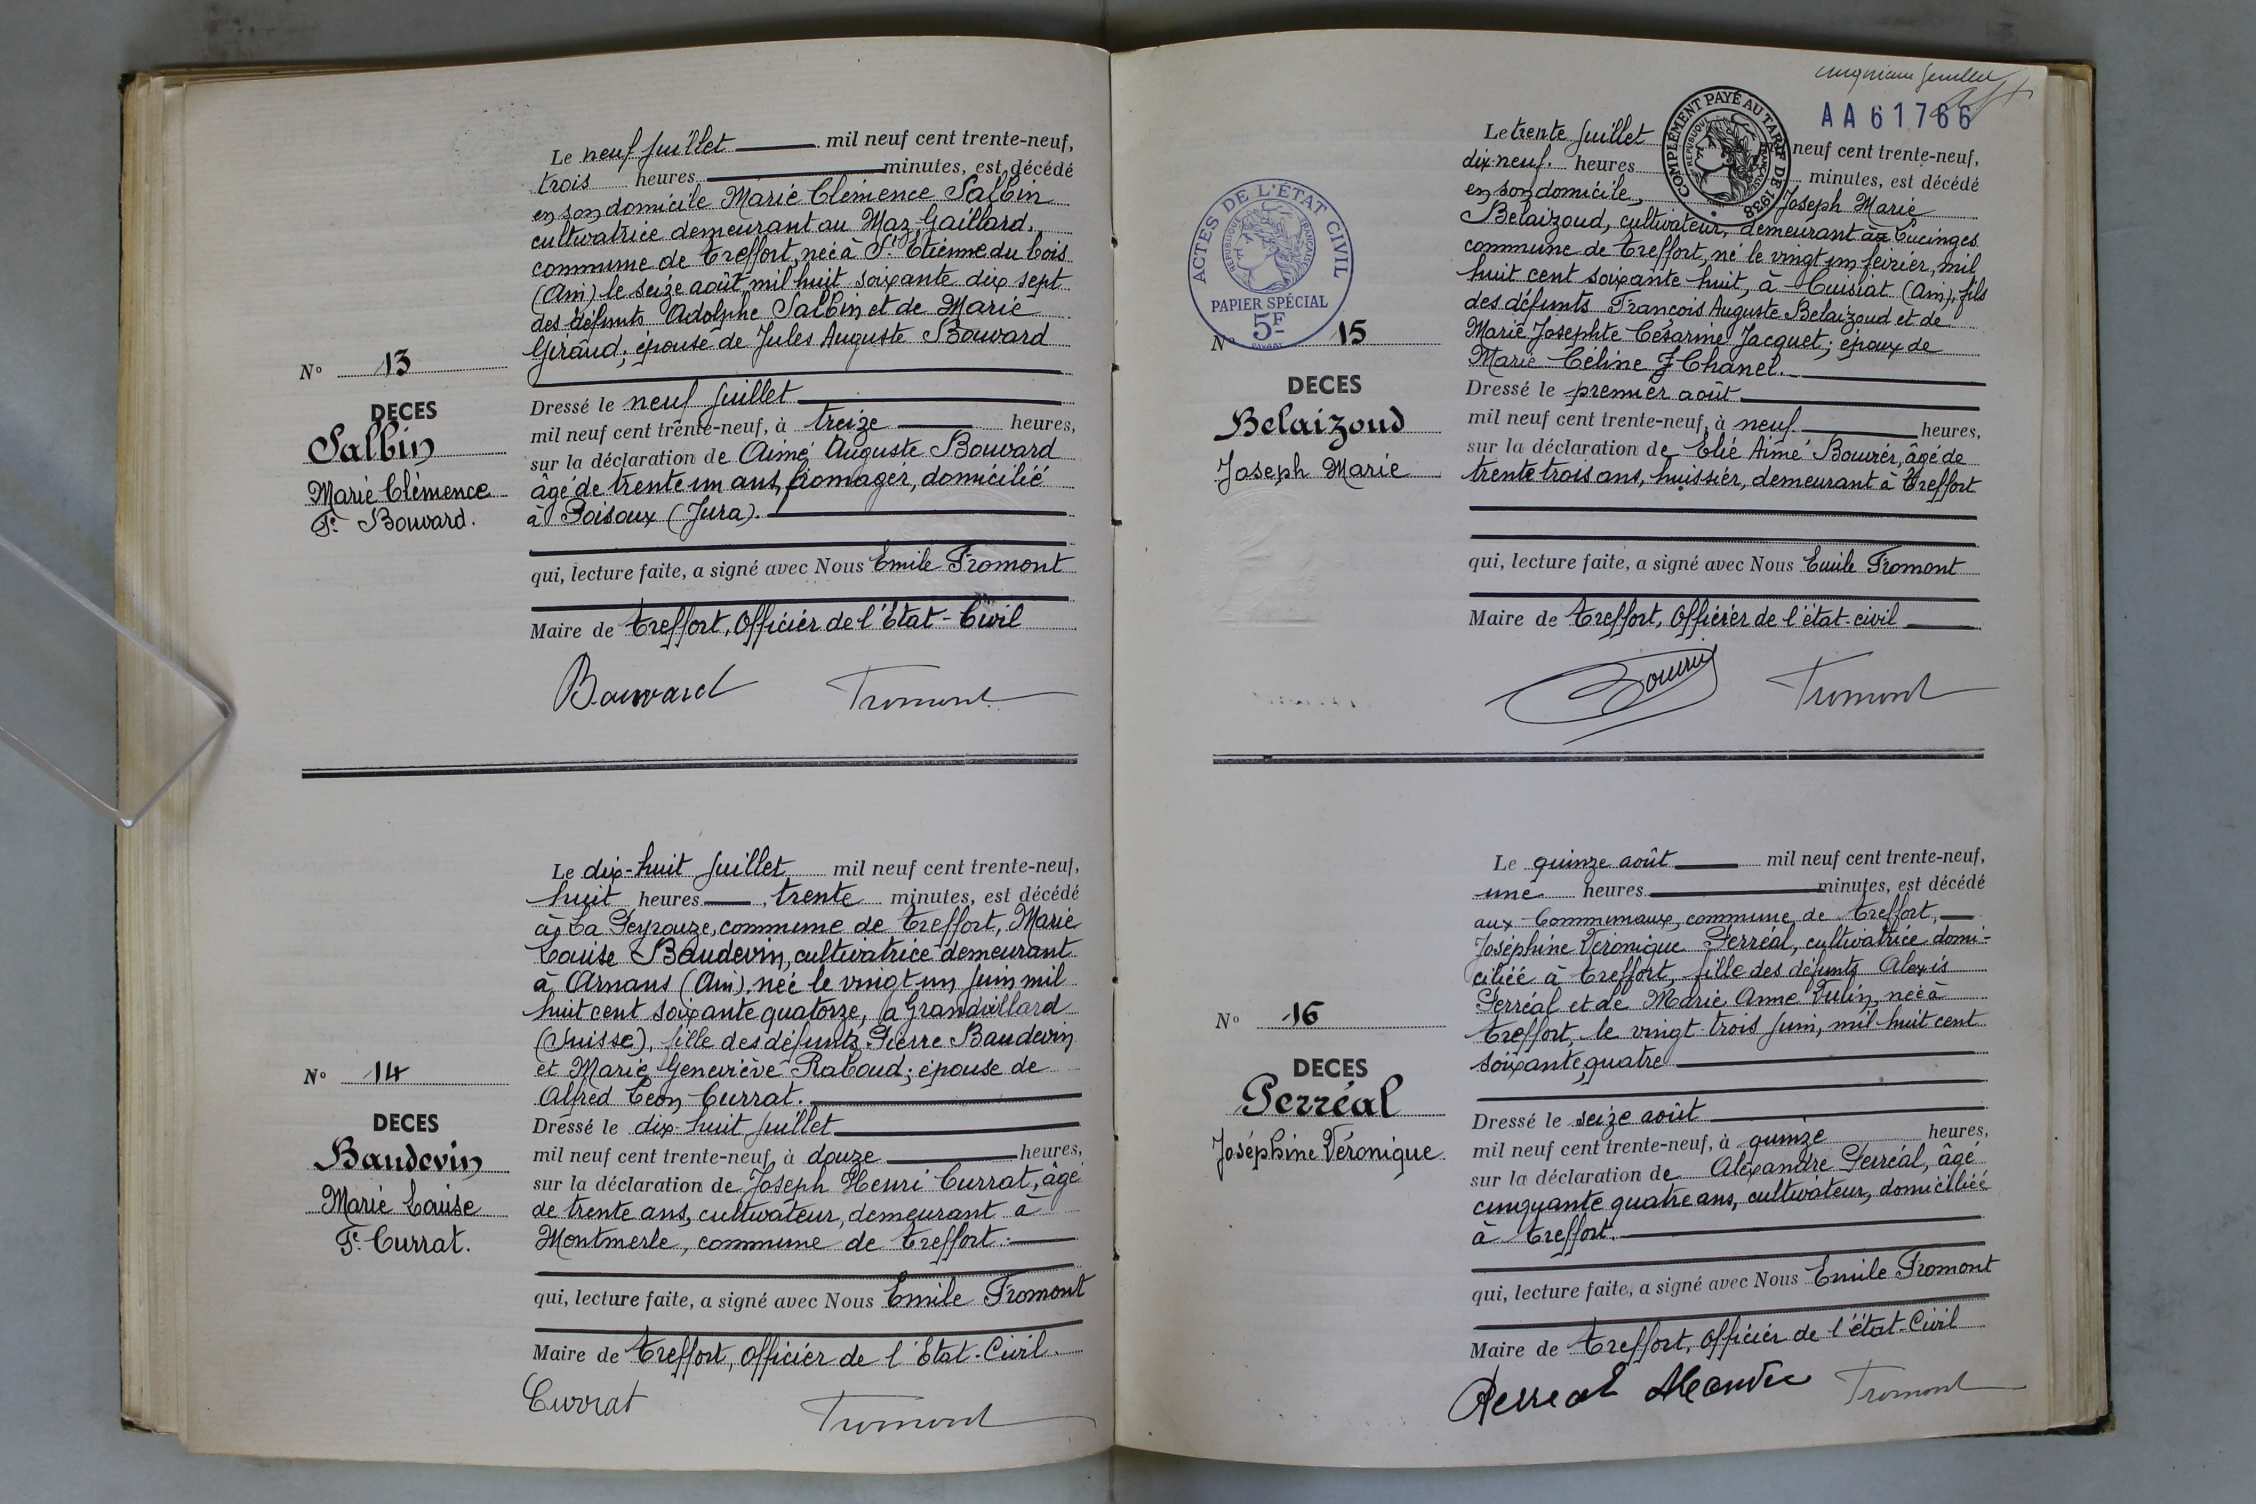 Le neuf juillet mil neuf cent trente-neuf,
trois heures minutes, est décédé
en son domicile Marie Clémence Salbin
cultivatrice demeurant au Maz Gaillard,
commune de Treffort, née à St Etienne du bois
(Ain) le seize août mil huit soixante dix sept
des défunts Adolphe Salbin et de Marie
Giraud; épouse de Jules Auguste Bouvard
N° 13
DECES
Salbin
Marie Clémence
Fe Bouvard.
Dressé le neuf juillet
mil neuf cent trente-neuf, à treize heures,
sur la déclaration de Aimé Auguste Bouvard
âgé de trente un ans, fromager, domicilié
à Poisoux (Jura).
qui, lecture faite, a signé avec Nous Emile Fromont
Maire de Treffort, Officier de l'Etat-Civil
Bouvard Fromont
Le dix-huit juillet mil neuf cent trente-neuf,
huit heures, trente minutes, est décédé
à La Peyrouze, commune de Treffort, Marie
Louise Baudevin, cultivatrice demeurant
à Arnans (Ain), née le vingt un juin mil
huit cent soixante quatorze, à Grandvillard
(Suisse), fille des défunts Pierre Baudevin
et Marie Geneviève Raboud; épouse de
Alfred Léon Currat.
N° 14
DECES
Baudevin
Marie Louise
Fe Currat.
Dressé le dix-huit juillet
mil neuf cent trente-neuf, à douze heures,
sur la déclaration de Joseph Henri Currat, âgé
de trente ans, cultivateur, demeurant à
Montmerle, commune de Treffort.
qui, lecture faite, a signé avec Nous Emile Fromont
Maire de Treffort, Officier de l'Etat-Civil.
Currat Fromont
feuillet
AA61766
COMPLÉMENT PAYÉ AU TARIF DE 1938
RÉPUBLIQUE FRANÇAISE
Le trente juillet neuf cent trente-neuf,
dix-neuf heures minutes, est décédé
en son domicile, Joseph Marie
Belaizoud, cultivateur, demeurant à Lucinges
commune de Treffort, né le vingt un février, mil
huit cent soixante huit, à Cuisiat (Ain), fils
des défunts François Auguste Belaizoud et de
Marie Josephte Césarine Jacquet; époux de
Marie Céline Chanel.
ACTES DE L'ÉTAT CIVIL
RÉPUBLIQUE FRANÇAISE
PAPIER SPÉCIAL
5F
N° 15
DECES
Belaizoud
Joseph Marie
Dressé le premier août
mil neuf cent trente-neuf, à neuf heures,
sur la déclaration de Elié Aimé Bouvier, âgé de
trente trois ans, huissier, demeurant à Treffort
qui, lecture faite, a signé avec Nous Emile Fromont
Maire de Treffort, Officier de l'état-civil
Fromont
Le quinze août mil neuf cent trente-neuf,
une heures minutes, est décédé
aux Communaux, commune de Treffort,
Joséphine Véronique Perréal, cultivatrice domi-
ciliée à Treffort, fille des défunts Alexis
Perréal et de Marie Anne Vulin, née à
Treffort, le vingt-trois juin, mil huit cent
soixante quatre
N° 16
DECES
Perréal
Joséphine Véronique
Dressé le seize août
mil neuf cent trente-neuf, à quinze heures,
sur la déclaration de Alexandre Perréal, âgé
cinquante quatre ans, cultivateur, domicilié
à Treffort.
qui, lecture faite, a signé avec Nous Emile Fromont
Maire de Treffort, Officier de l'état-Civil
Perreal Fromont